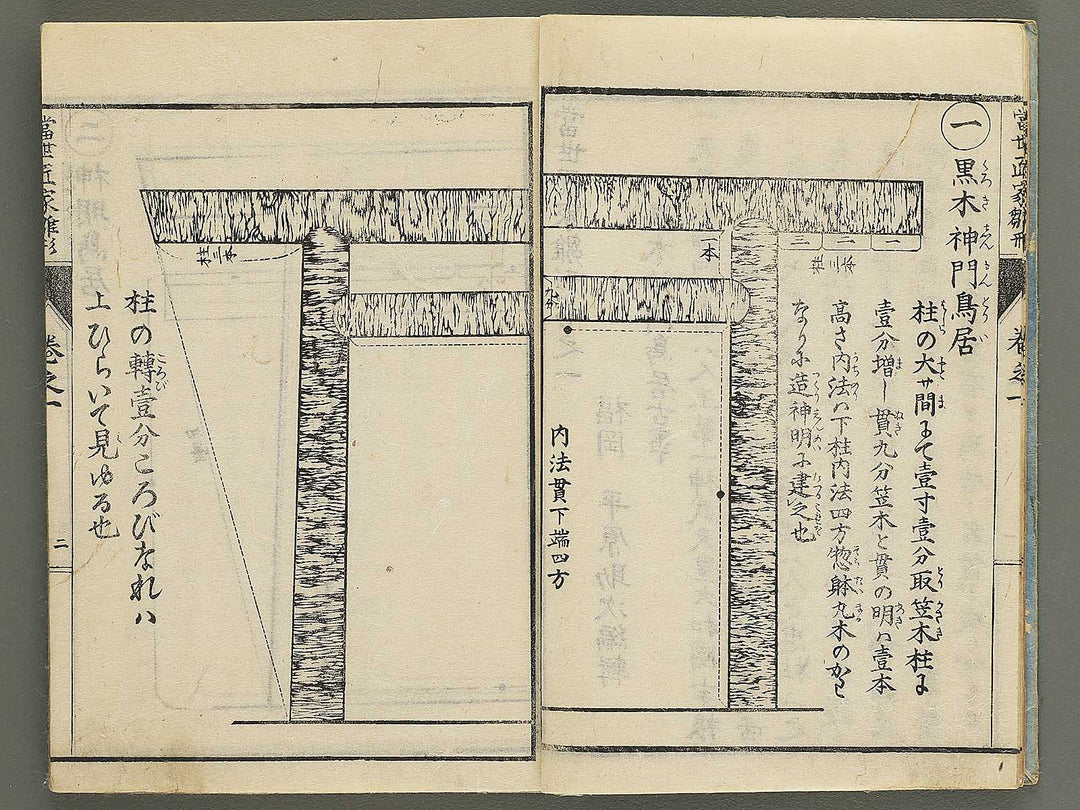 當世匠家雛形
巻之一
一 黒木神門鳥居
柱の大サ間にて壹寸壹分取笠木柱に
壹分増し貫九分笠木と貫の明ハ壹本
高さ内法ハ下柱内法四方惣躰丸木の
なりに造神明に建之也
一
二
三
柱三本
本
九分
内法貫下端四方
柱三本
柱の轉壹分ころびなれハ
上ひらいて見ゆる也
當世匠家雛形
巻之一
二